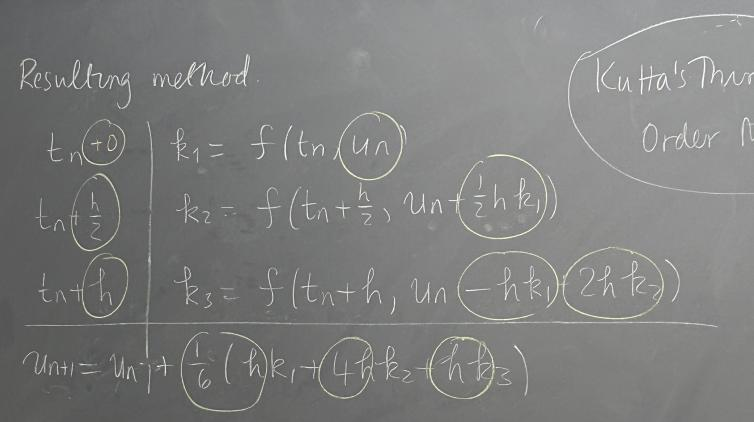 Resulting method.
Kutta's
Order
tn +0 | k1 = f(tn, un)
tn + h/2 | k2 = f(tn + h/2, un + 1/2 hk1)
tn + h | k3 = f(tn + h, un - hk1 + 2hk2)
un+1 = un + 1/6 (hk1 + 4hk2 + hk3)